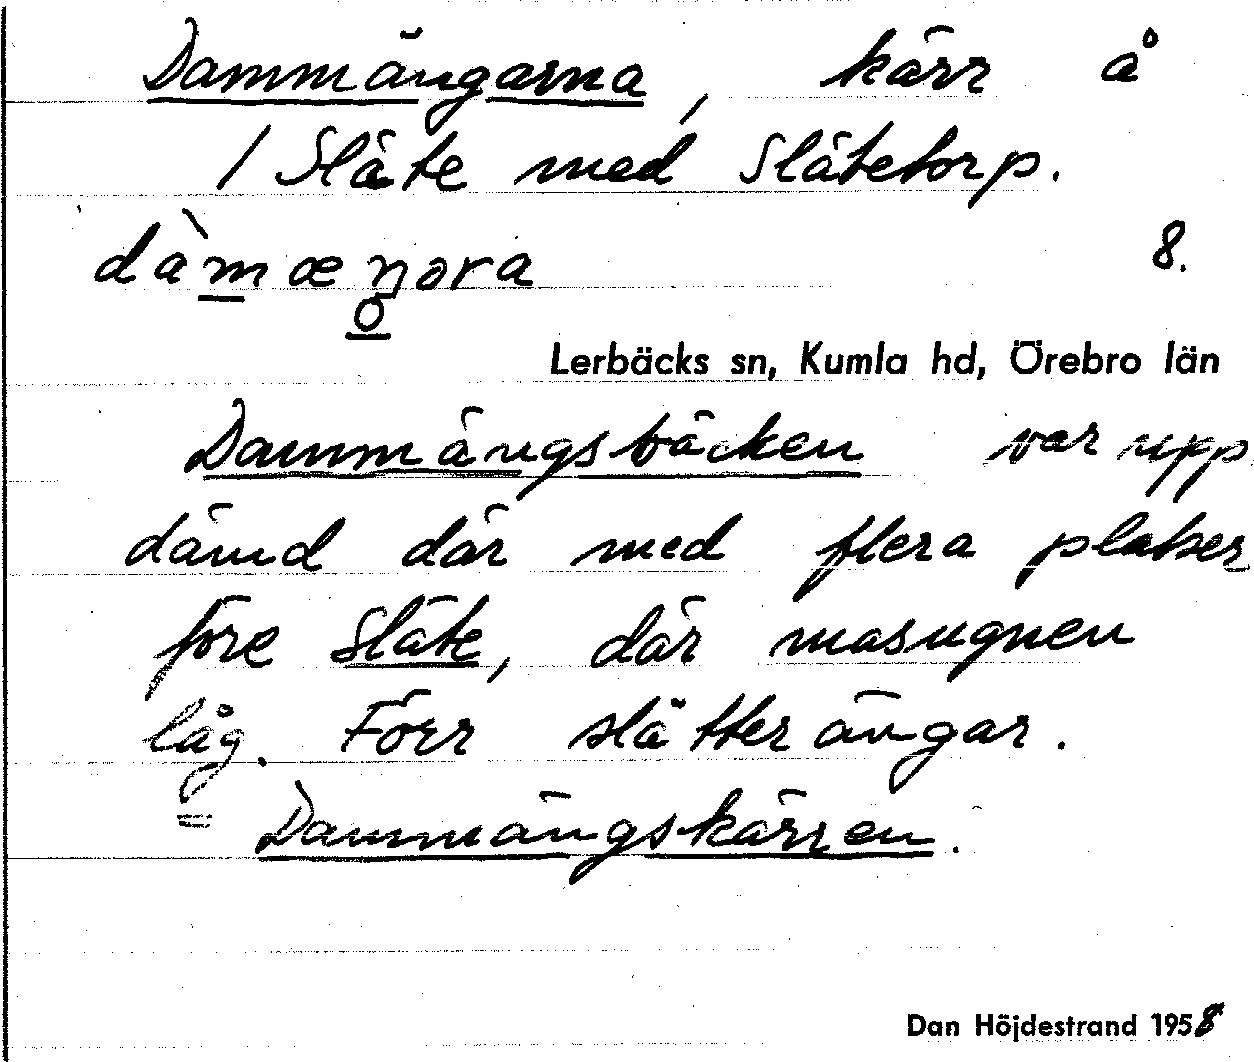 Dammängarna, kärr å
/ Släte med Slätetorp.
dàmæŋora 8.
Lerbäcks sn, Kumla hd, Örebro län
Dammängsbäcken var upp
dämd där med flera platser
före Släte, där masugnen
låg. Förr slätterängar.
= Dammängskärren.
Dan Höjdestrand 1958